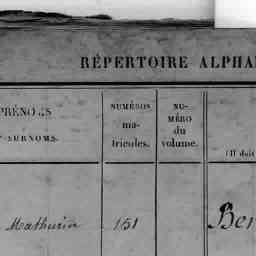 RÉPERTOIRE ALPHA
PRÉNOMS
SURNOMS.
NUMÉROS
ma-
tricules.
NU-
MÉRO
du
volume.
(Il doit
Mathurin
151
Ber